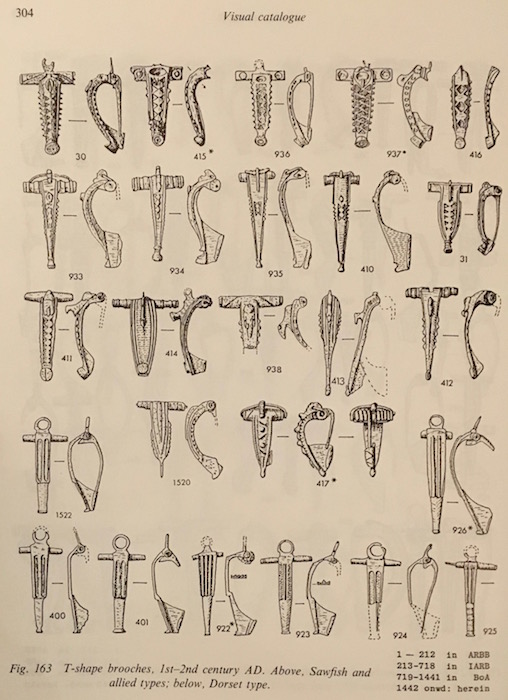 304
Visual catalogue
30
415*
936
937*
416
933
934
935
410
31
411
414
938
413
412
1522
1520
417*
926*
400
401
922*
923
924
925
1 — 212 in ARBB
213-718 in IARB
719-1441 in BoA
1442 onwd: herein
Fig. 163 T-shape brooches, 1st–2nd century AD. Above, Sawfish and
allied types; below, Dorset type.